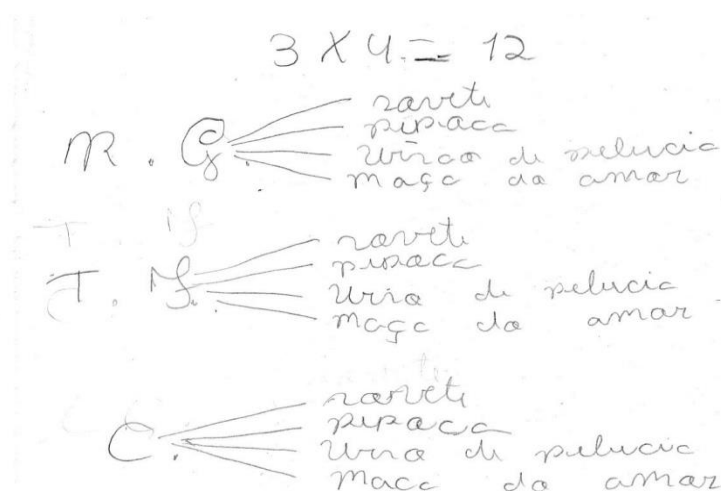 3 X 4 = 12
R. G.
sorvete
pipoca
Urso de pelucia
maça do amor
T. M.
sorvete
pipoca
Urso de pelucia
maça do amor
C.
sorvete
pipoca
Urso de pelucia
maca do amor